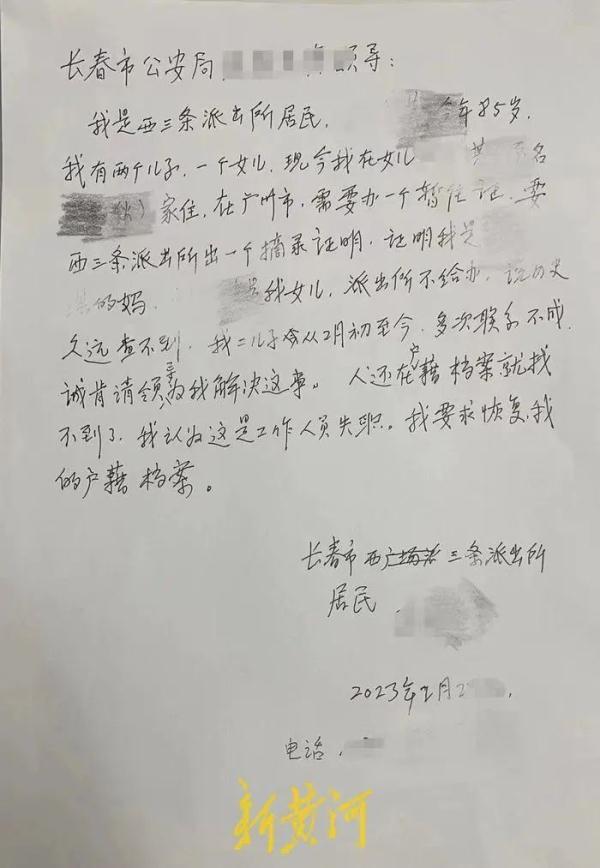 长春市公安局 领导：
我是西三条派出所居民， 今年85岁，
我有两个儿子，一个女儿，现今我在女儿
家住，在广州市，需要办一个暂住证，要
西三条派出所出一个摘录证明，证明我是
的妈， 是我女儿，派出所不给办，说历史
久远查不到，我二儿子从2月初至今，多次联系不成，
诚肯请领导为我解决这事。人还在户藉档案就找
不到了，我认为这是工作人员失职。我要求恢复我
的户藉档案。
长春市西三条派出所
居民
2023年2月2
电话
新黄河